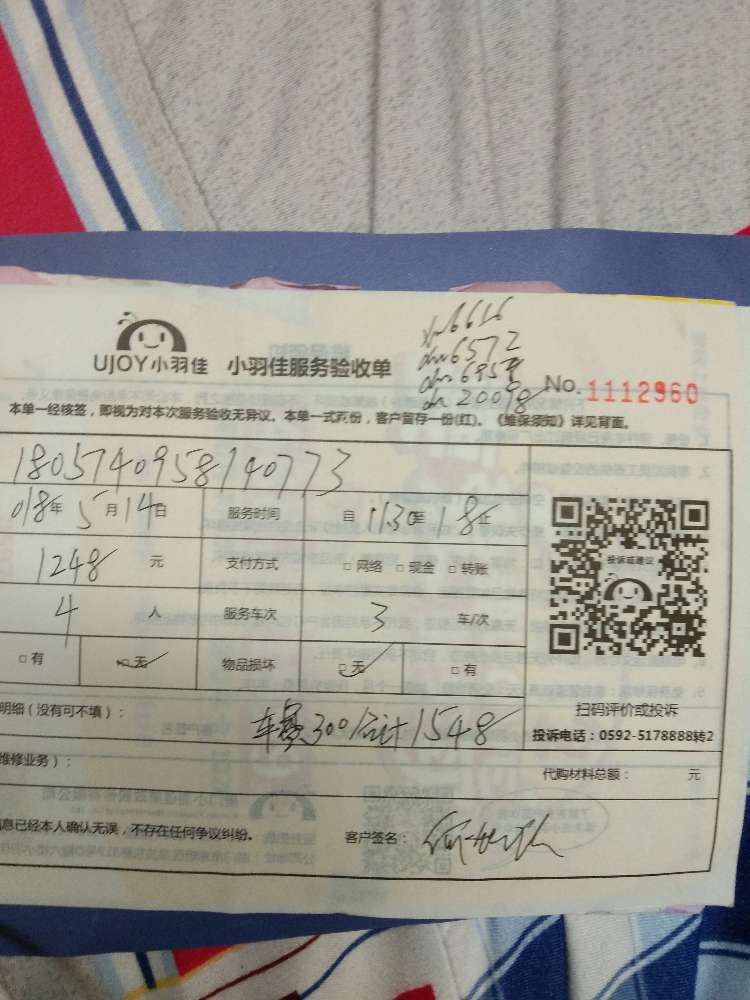 UJOY小羽佳 小羽佳服务验收单
6616
6572
6957
20098
No. 1112960
本单一经核签，即视为对本次服务验收无异议。本单一式两份，客户留存一份(红)。《维保须知》详见背面。
1805740958140773
018年 5月14日 服务时间 自 11:30至 18止
1248 元 支付方式 □ 网络 □ 现金 □ 转账
4 人 服务车次 3 车/次
□ 有 □ 无 物品损坏 □ 无 □ 有
投诉或建议
扫码评价或投诉
投诉电话：0592-5178888转2
明细（没有可不填）：
车费300 合计1548
维修业务）：
代购材料总额： 元
信息已经本人确认无误，不存在任何争议纠纷。
客户签名：